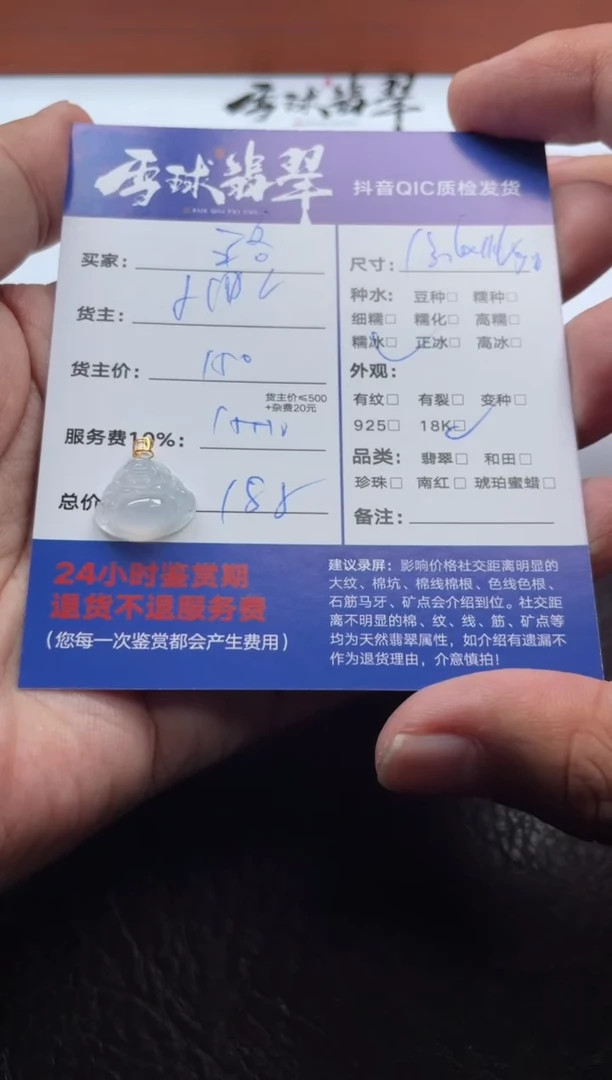 雪球翡翠
雪球翡翠
抖音QIC质检发货
买家：
货主：
货主价：150
货主价≤500
+杂费20元
服务费10%：
总价 188
尺寸：
种水： 豆种□ 糯种□
细糯□ 糯化□ 高糯□
糯冰□ 正冰□ 高冰□
外观：
有纹□ 有裂□ 变种□
925□ 18K□
品类： 翡翠□ 和田□
珍珠□ 南红□ 琥珀蜜蜡□
备注：
24小时鉴赏期
退货不退服务费
（您每一次鉴赏都会产生费用）
建议录屏：影响价格社交距离明显的
大纹、棉坑、棉线棉根、色线色根、
石筋马牙、矿点会介绍到位。社交距
离不明显的棉、纹、线、筋、矿点等
均为天然翡翠属性，如介绍有遗漏不
作为退货理由，介意慎拍！